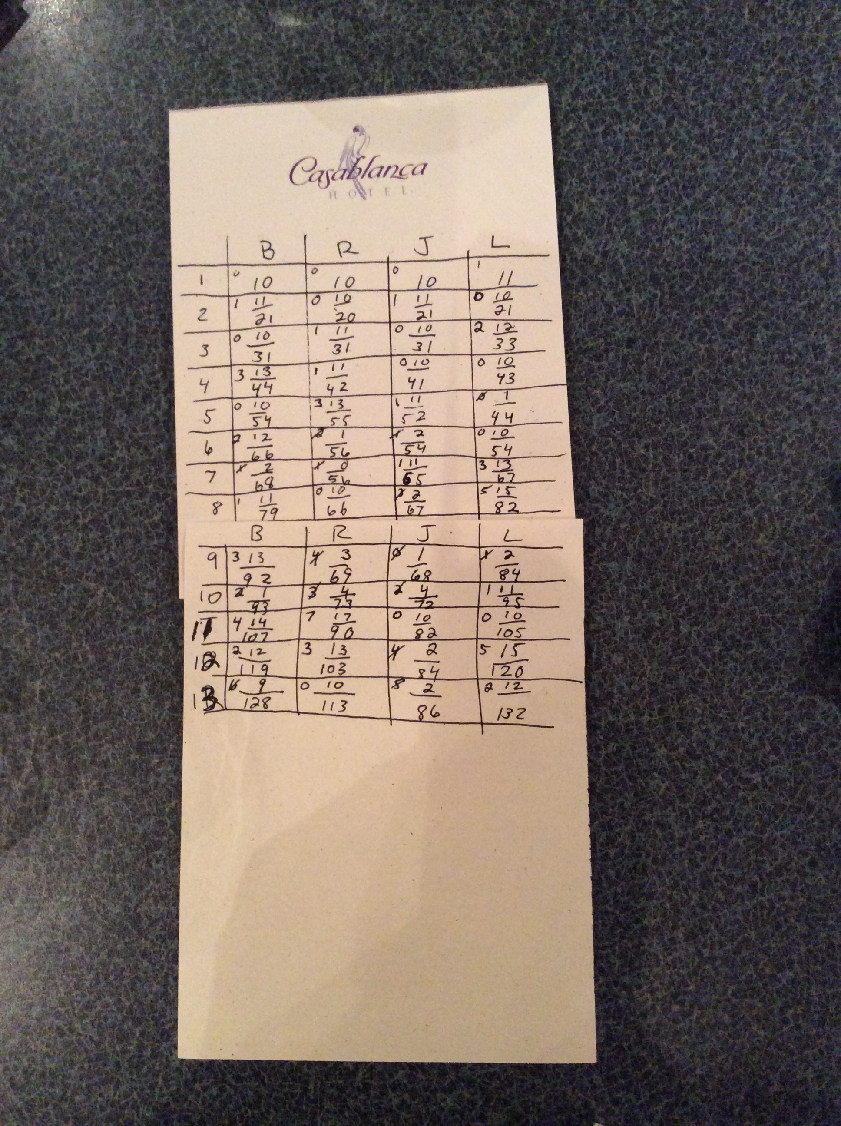 Casablanca
HOTEL
B R J L
1 0 10 0 10 0 10 1 11
2 1 11 0 10 1 11 0 10
21 20 21 21
3 0 10 1 11 0 10 2 12
31 31 31 33
4 3 13 1 11 0 10 0 10
44 42 41 43
5 0 10 3 13 1 11 0 1
54 55 52 44
6 2 12 1 2 0 10
66 56 54 54
7 2 0 1 11 3 13
68 56 65 67
8 1 11 0 10 2 5 15
79 66 67 82
B R J L
9 3 13 4 3 0 1 1 2
92 69 68 84
10 2 1 3 4 2 4 1 11
93 73 72 95
11 4 14 7 17 0 10 0 10
107 90 82 105
12 2 12 3 13 4 2 5 15
119 103 84 120
13 6 9 0 10 8 2 2 12
128 113 86 132